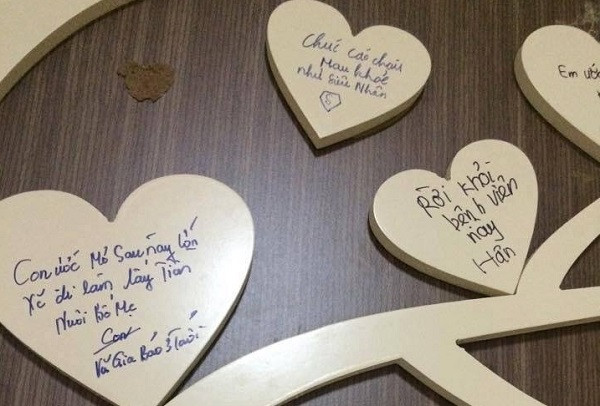 Chúc các cháu
Mau khoẻ
như Siêu Nhân
S
Em ước
Rời khỏi
bệnh viện
này
Hân
Con ước Mơ Sau này lớn
Xẽ đi làm lấy Tiền
Nuôi Bố Mẹ
Con
Vũ Gia Bảo 3 Tuổi